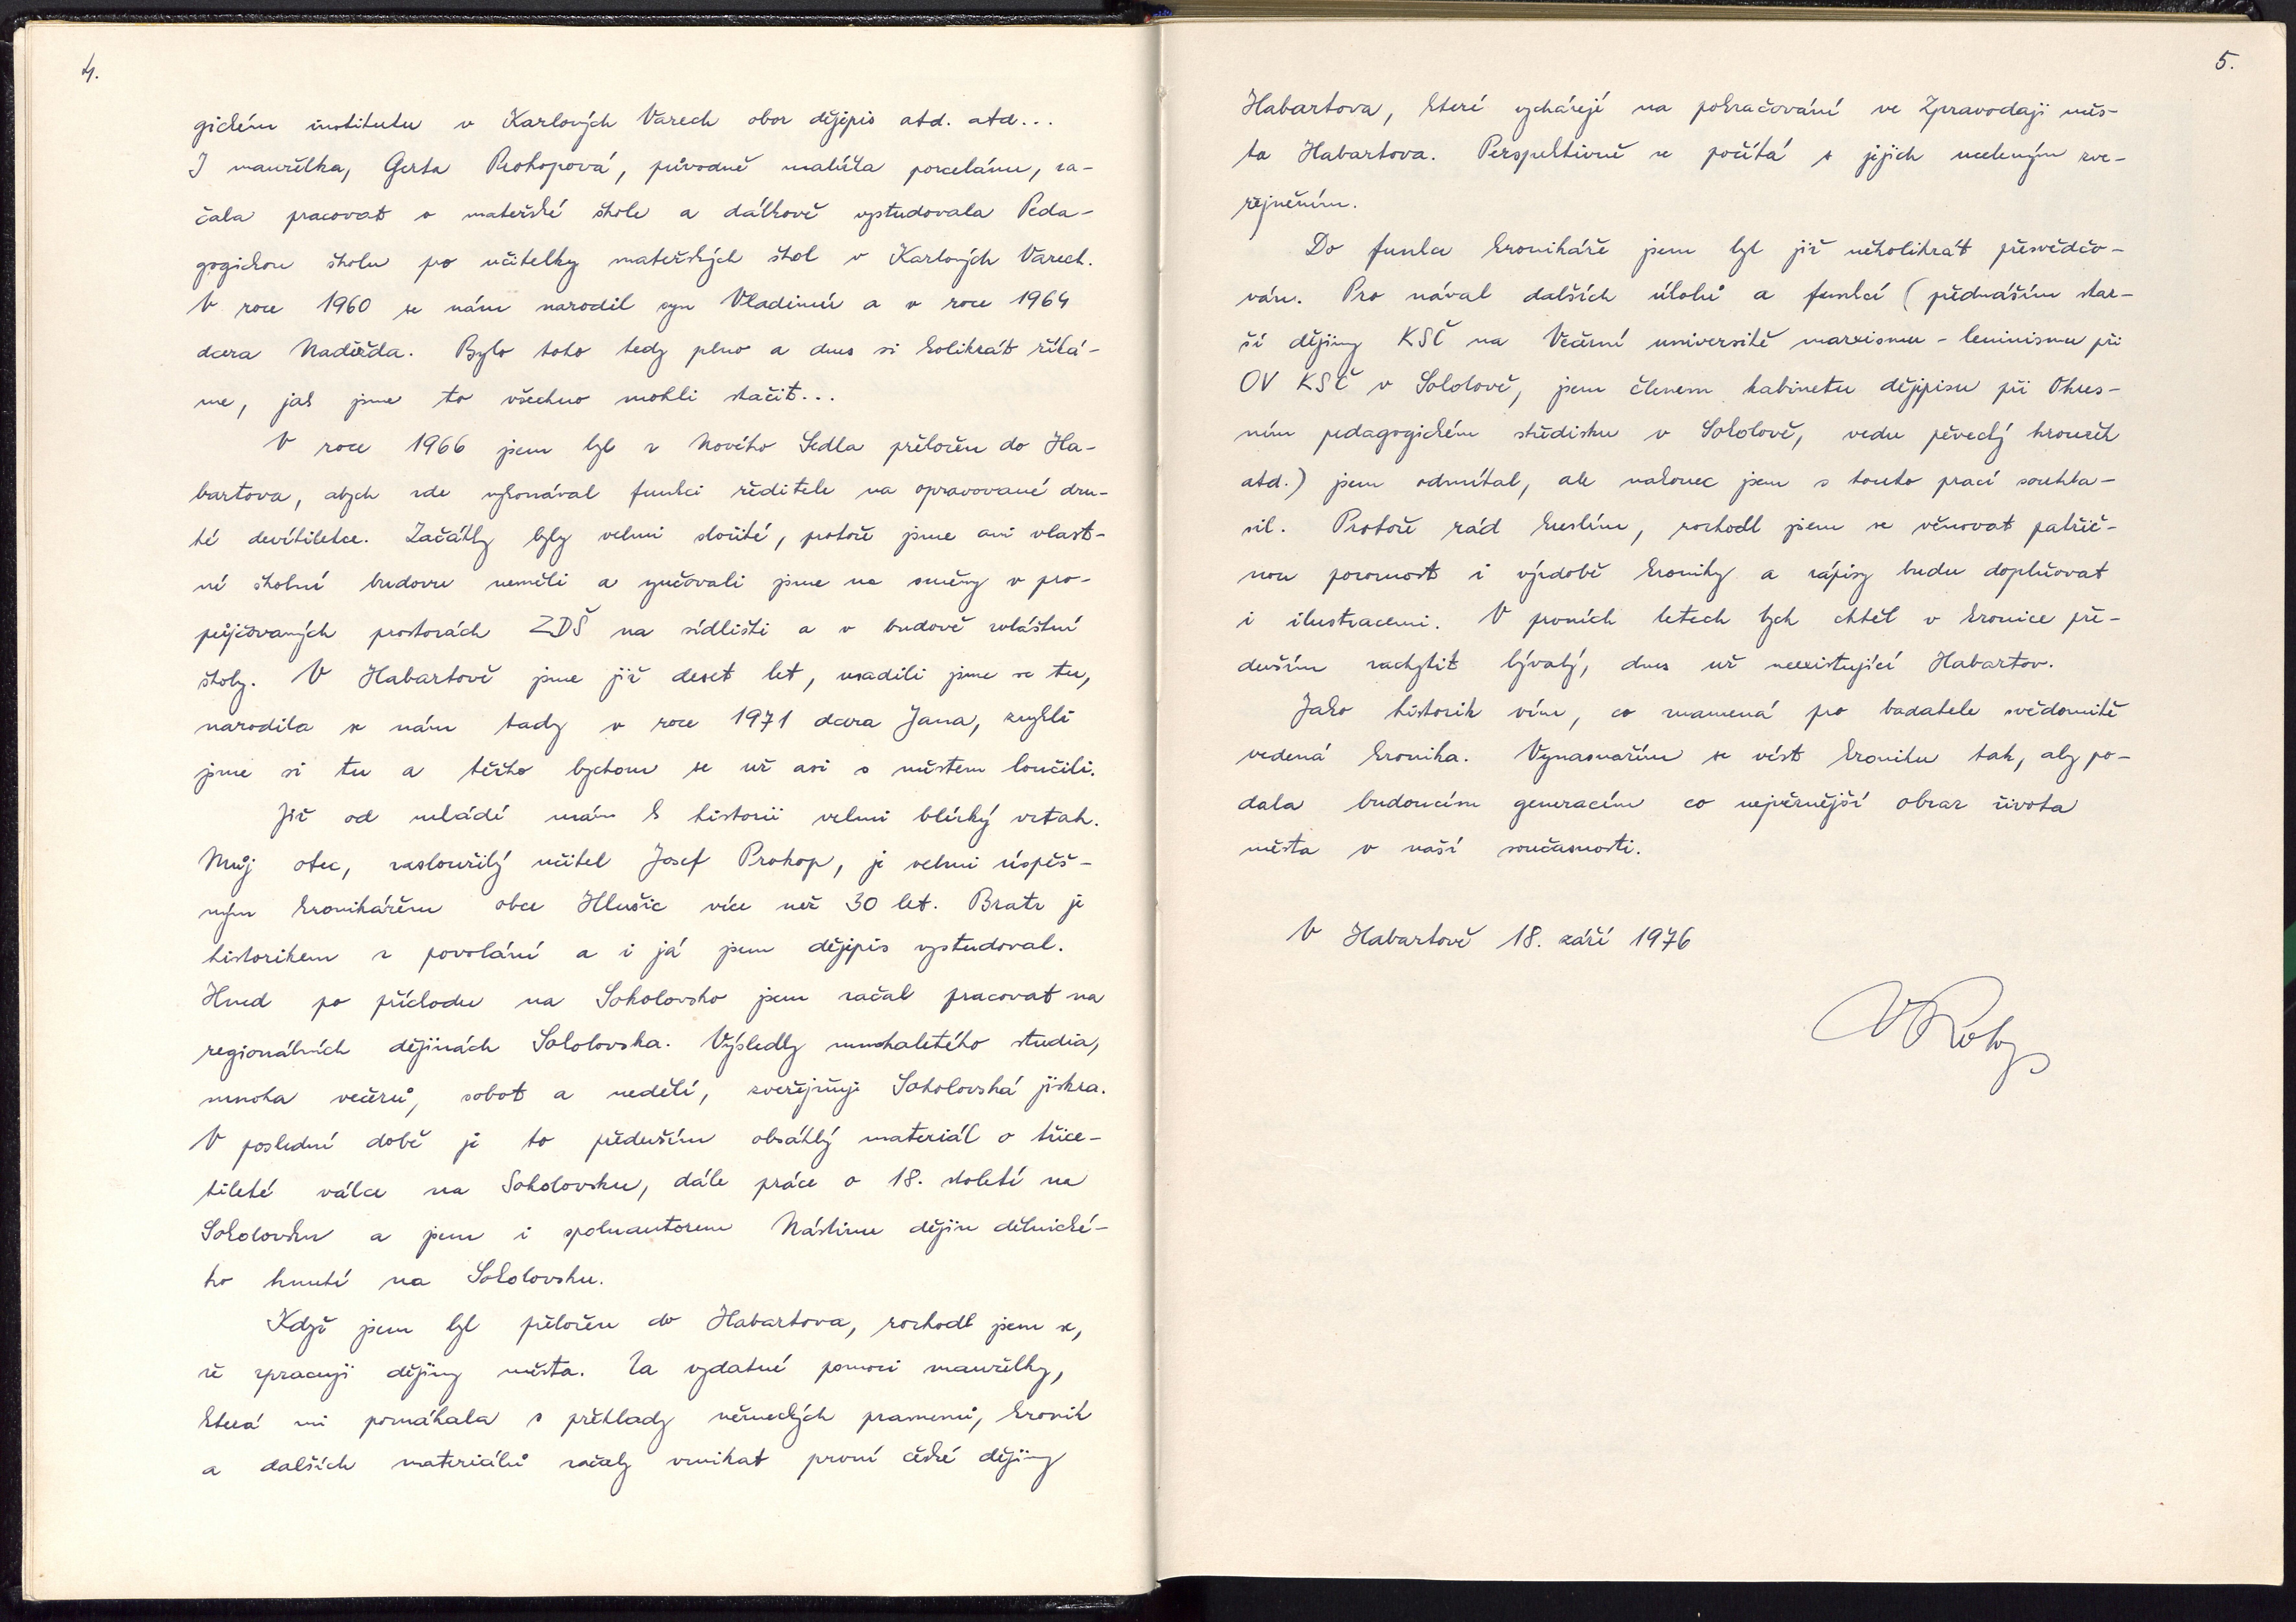 4.
gickém institutu v Karlových Varech obor dějepis atd. atd...
I manželka, Gerta Prokopová, původně malířka porcelánu, za-
čala pracovat v mateřské škole a dálkově vystudovala Peda-
gogickou školu pro učitelky mateřských škol v Karlových Varech.
V roce 1960 se nám narodil syn Vladimír a v roce 1964
dcera Naděžda. Bylo toho tedy plno a dnes si kolikrát říká-
me, jak jsme to všechno mohli stačit...
V roce 1966 jsem byl z Nového Sedla přeložen do Ha-
bartova, abych zde vykonával funkci ředitele na opravované dru-
hé devítiletce. Začátky byly velmi složité, protože jsme ani vlast-
ní školní budovu neměli a vyučovali jsme na směny v pro-
půjčovaných prostorách ZDŠ na sídlišti a v budově zvláštní
školy. V Habartově jsme již deset let, usadili jsme se tu,
narodila se nám tady v roce 1971 dcera Jana, zvykli
jsme si tu a těžko bychom se už asi s městem loučili.
Již od mládí mám k historii velmi blízký vztah.
Můj otec, zasloužilý učitel Josef Prokop, je velmi úspěš-
ným kronikářem obce Hlušic více než 30 let. Bratr je
historikem z povolání a i já jsem dějepis vystudoval.
Hned po příchodu na Sokolovsko jsem začal pracovat na
regionálních dějinách Sokolovska. Výsledky mnohaletého studia,
mnoha večerů, sobot a nedělí, zveřejňuje Sokolovská jiskra.
V poslední době je to především obsáhlý materiál o třice-
tileté válce na Sokolovsku, dále práce o 18. století na
Sokolovsku a jsem i spoluautorem Nástinu dějin dělnické-
ho hnutí na Sokolovsku.
Když jsem byl přeložen do Habartova, rozhodl jsem se,
že zpracuji dějiny města. Za vydatné pomoci manželky,
která mi pomáhala s překlady německých pramenů, kronik
a dalších materiálů začaly vznikat první české dějiny
5.
Habartova, které vycházejí na pokračování ve Zpravodaji měs-
ta Habartova. Perspektivně se počítá s jejich uceleným zve-
řejněním.
Do funkce kronikáře jsem byl již několikrát přesvědčo-
ván. Pro nával dalších úkolů a funkcí (přednáším star-
ší dějiny KSČ na Večerní universitě marxismu - leninismu při
OV KSČ v Sokolově, jsem členem kabinetu dějepisu při Okres-
ním pedagogickém středisku v Sokolově, vedu pěvecký kroužek
atd.) jsem odmítal, ale nakonec jsem s touto prací souhla-
sil. Protože rád kreslím, rozhodl jsem se věnovat patřič-
nou pozornost i výzdobě kroniky a zápisy budu doplňovat
i ilustracemi. V prvních letech bych chtěl v kronice pře-
devším zachytit bývalý, dnes už neexistující Habartov.
Jako historik vím, co znamená pro badatele svědomitě
vedená kronika. Vynasnažím se vést kroniku tak, aby po-
dala budoucím generacím co nejvěrnější obraz života
města v naší současnosti.
V Habartově 18. září 1976
VProkop